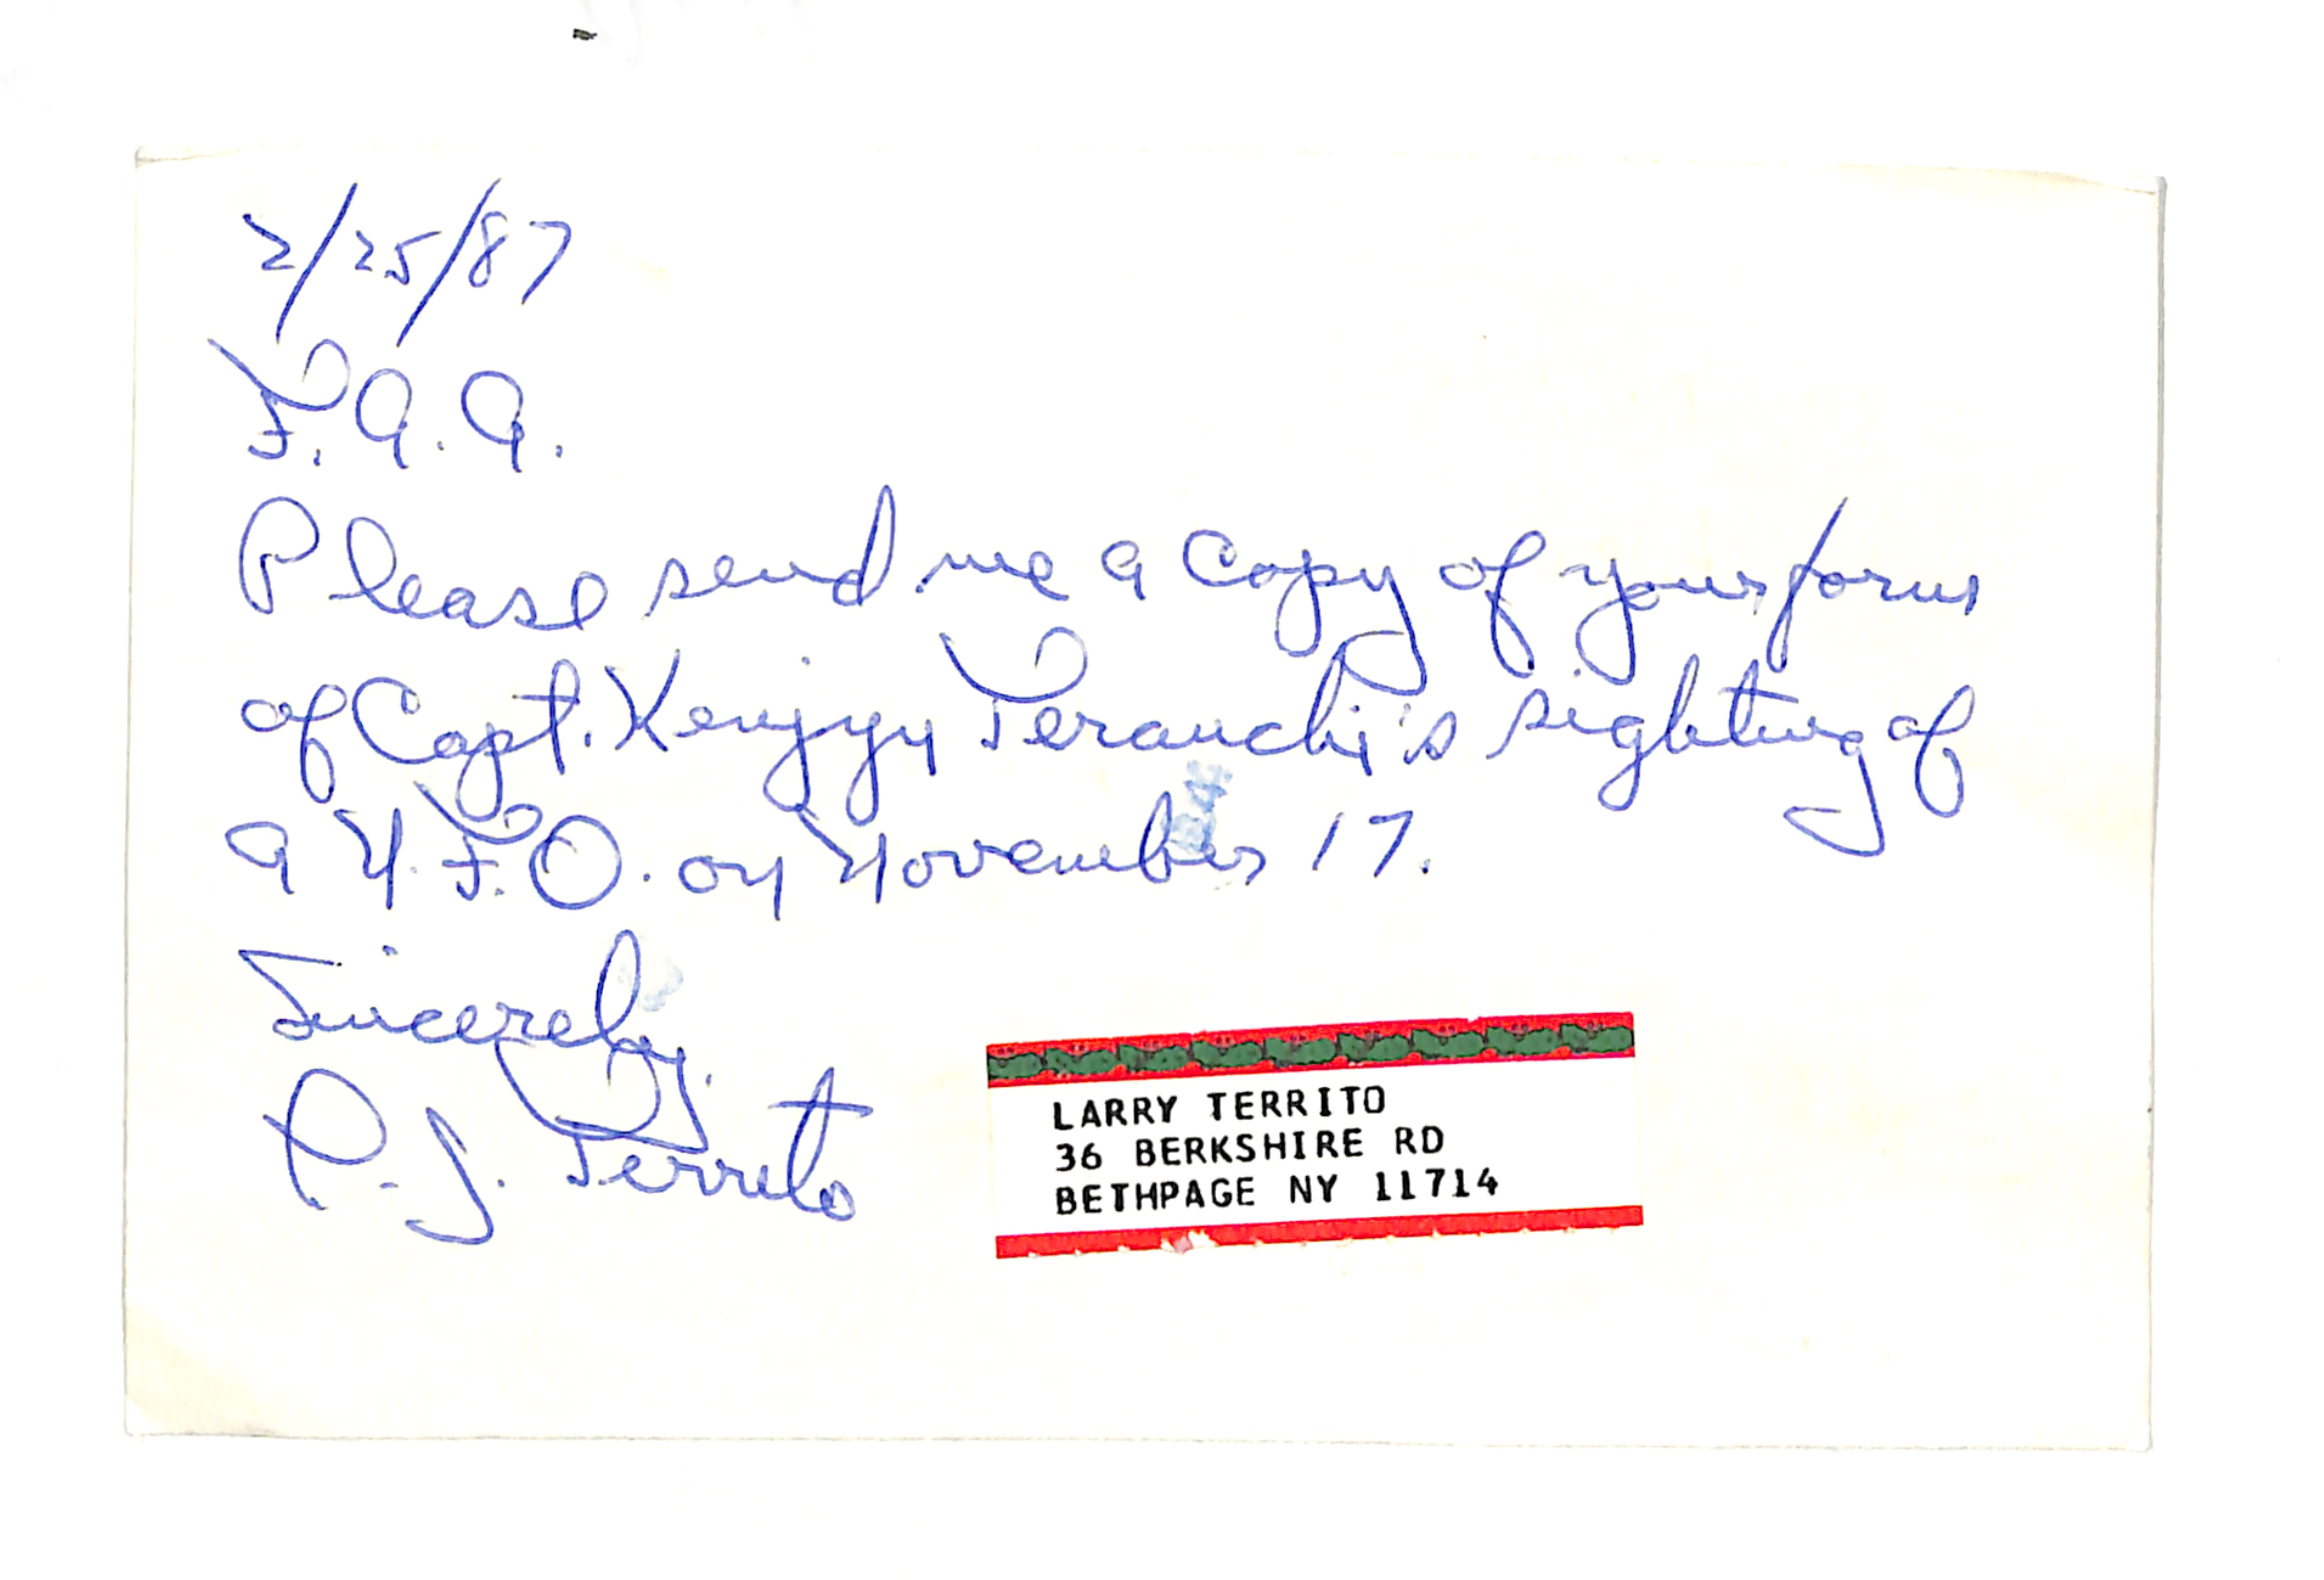 2/25/87
F.A.A.
Please send me a copy of your form
of Capt. Kenjyu Terauchi's sighting of
a U.F.O. on November 17.
Sincerely,
P.J. Territo
LARRY TERRITO
36 BERKSHIRE RD
BETHPAGE NY 11714